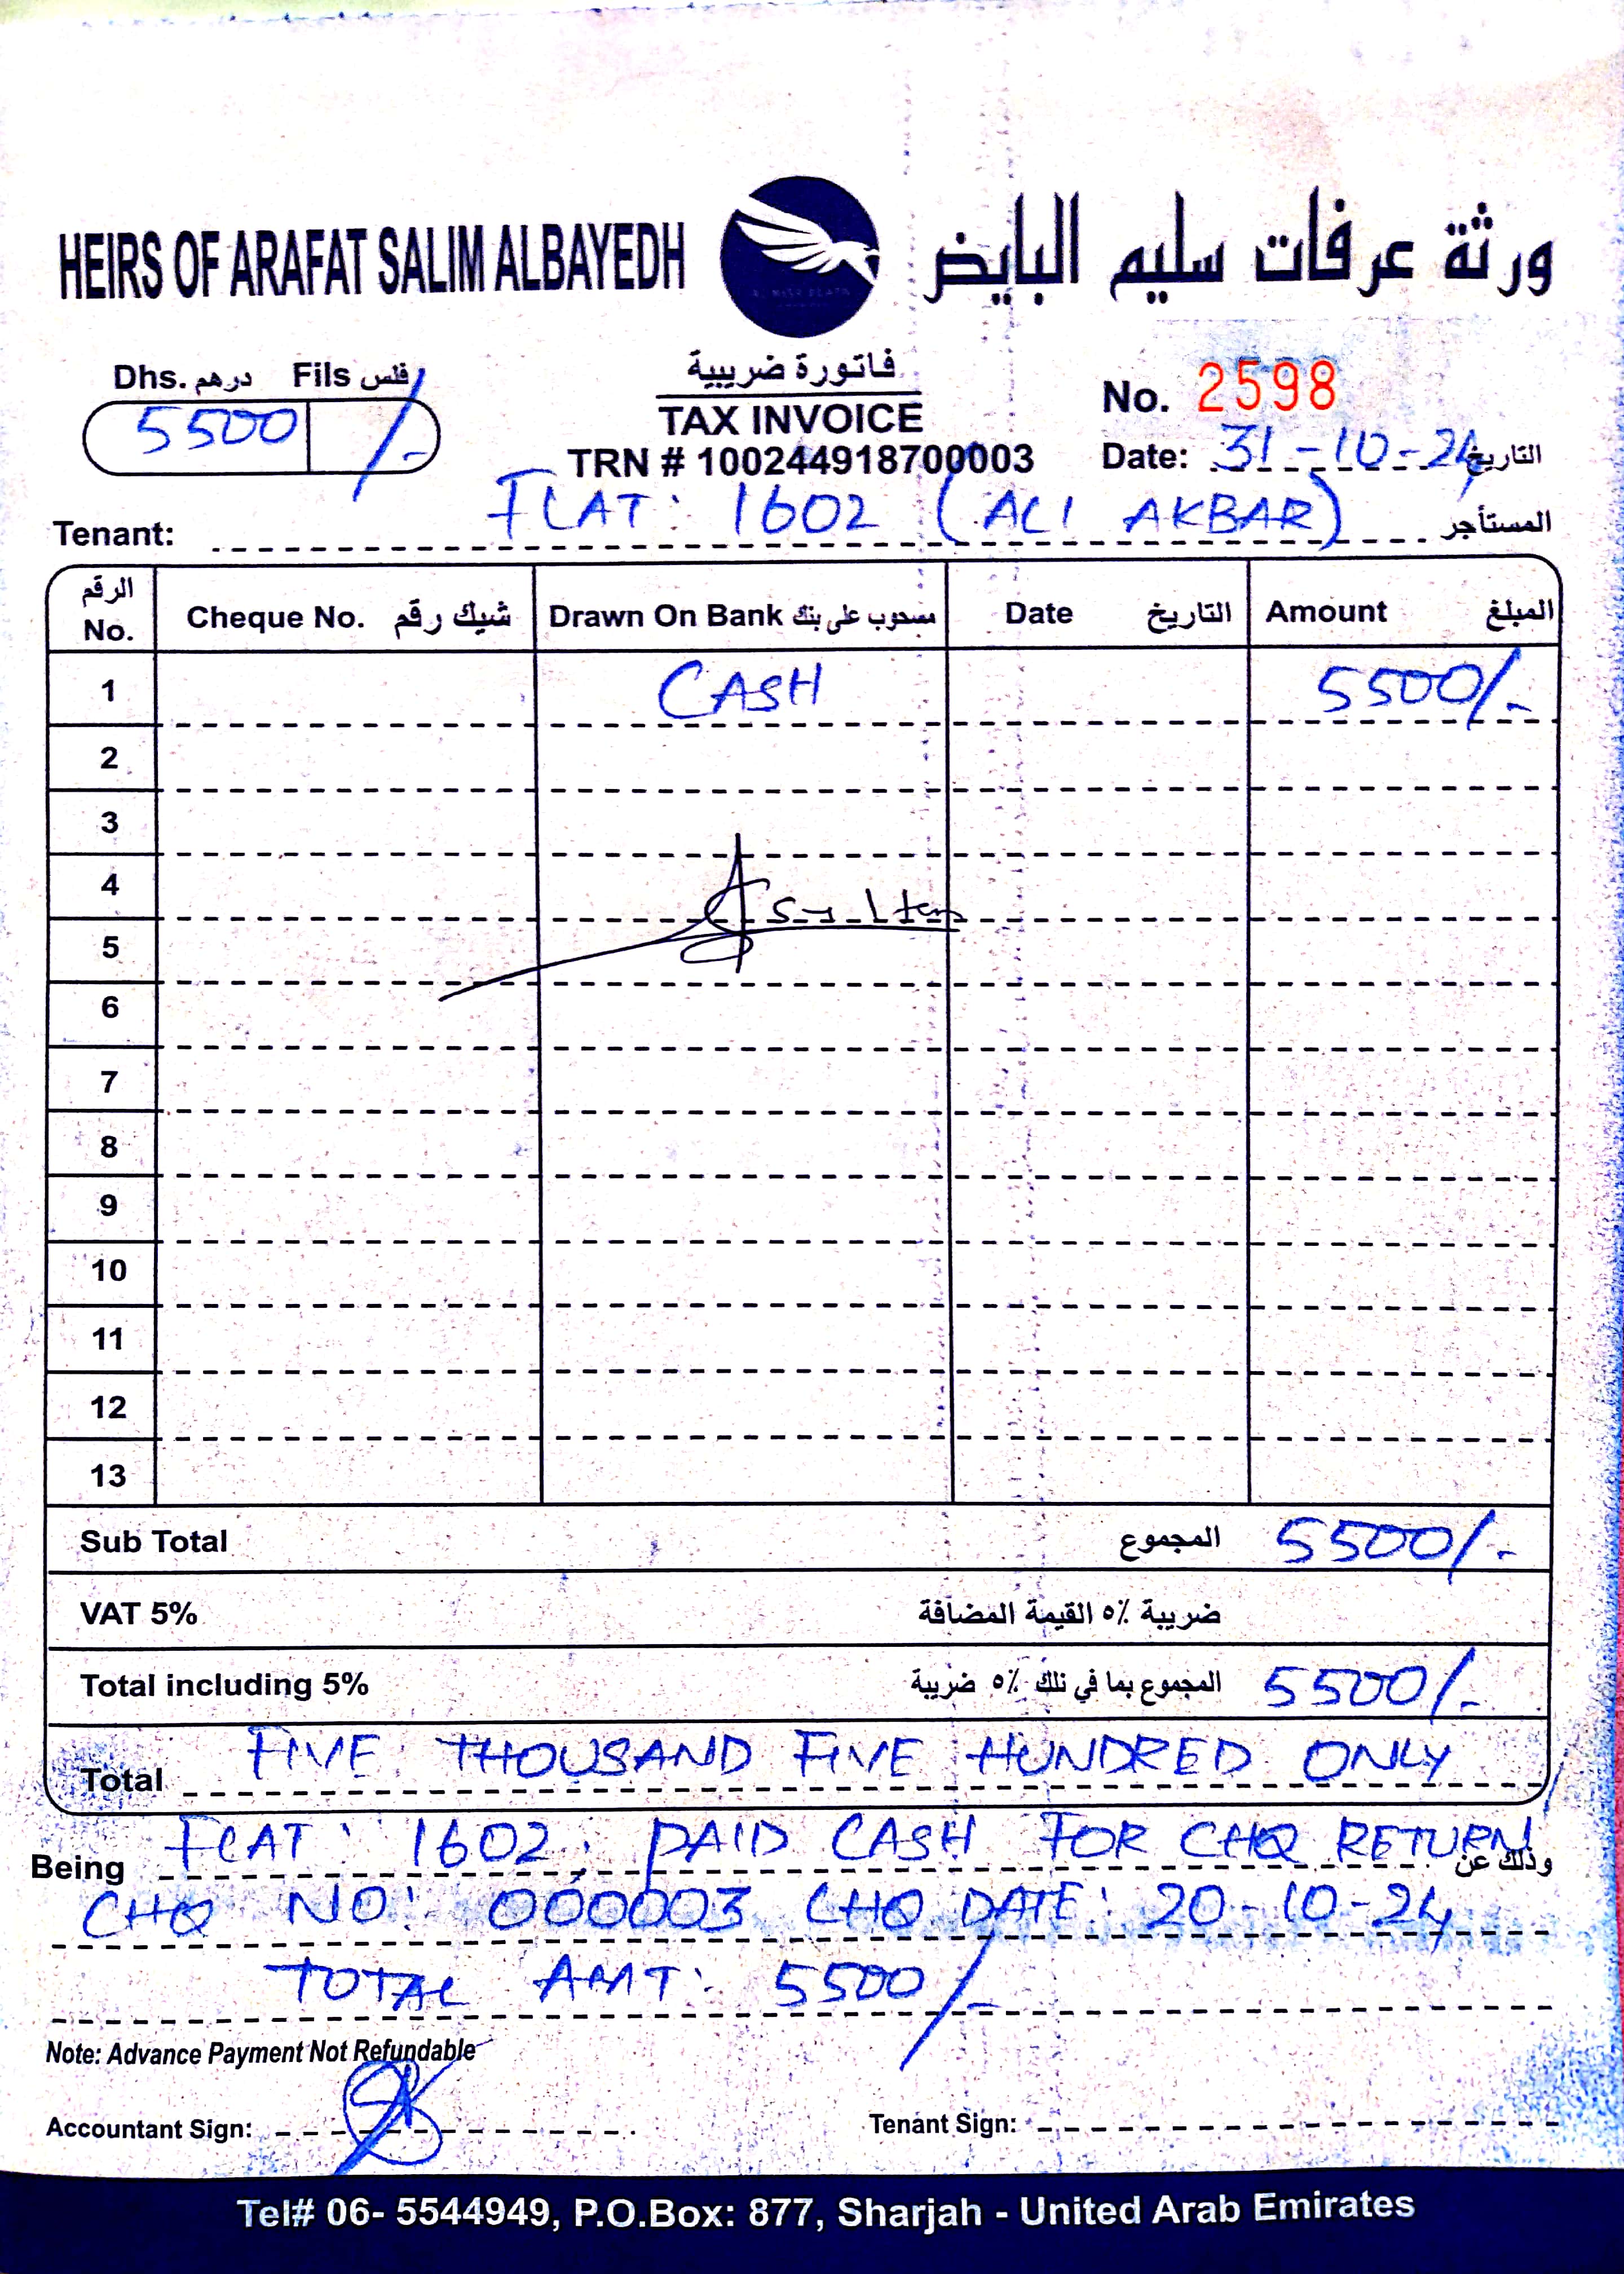 HEIRS OF ARAFAT SALIM ALBAYEDH ورثة عرفات سليم البايض
Dhs. درهم Fils فلس
5500 /-
فاتورة ضريبية
TAX INVOICE
TRN # 100244918700003
No. 2598
Date: 31-10-24 التاريخ
Tenant: FLAT: 1602 (ALI AKBAR) المستأجر
الرقم No. Cheque No. شيك رقم Drawn On Bank مسحوب على بنك Date التاريخ Amount المبلغ
1 CASH 5500/-
2
3
4
5
6
7
8
9
10
11
12
13
Sub Total المجموع 5500/-
VAT 5% ضريبة ٥٪ القيمة المضافة
Total including 5% المجموع بما في ذلك ٥٪ ضريبة 5500/-
Total FIVE THOUSAND FIVE HUNDRED ONLY
Being FLAT: 1602, PAID CASH FOR CHQ RETURN وذلك عن
CHQ NO: 000003 CHQ DATE: 20-10-24
TOTAL AMT: 5500/-
Note: Advance Payment Not Refundable
Accountant Sign: Tenant Sign:
Tel# 06- 5544949, P.O.Box: 877, Sharjah - United Arab Emirates